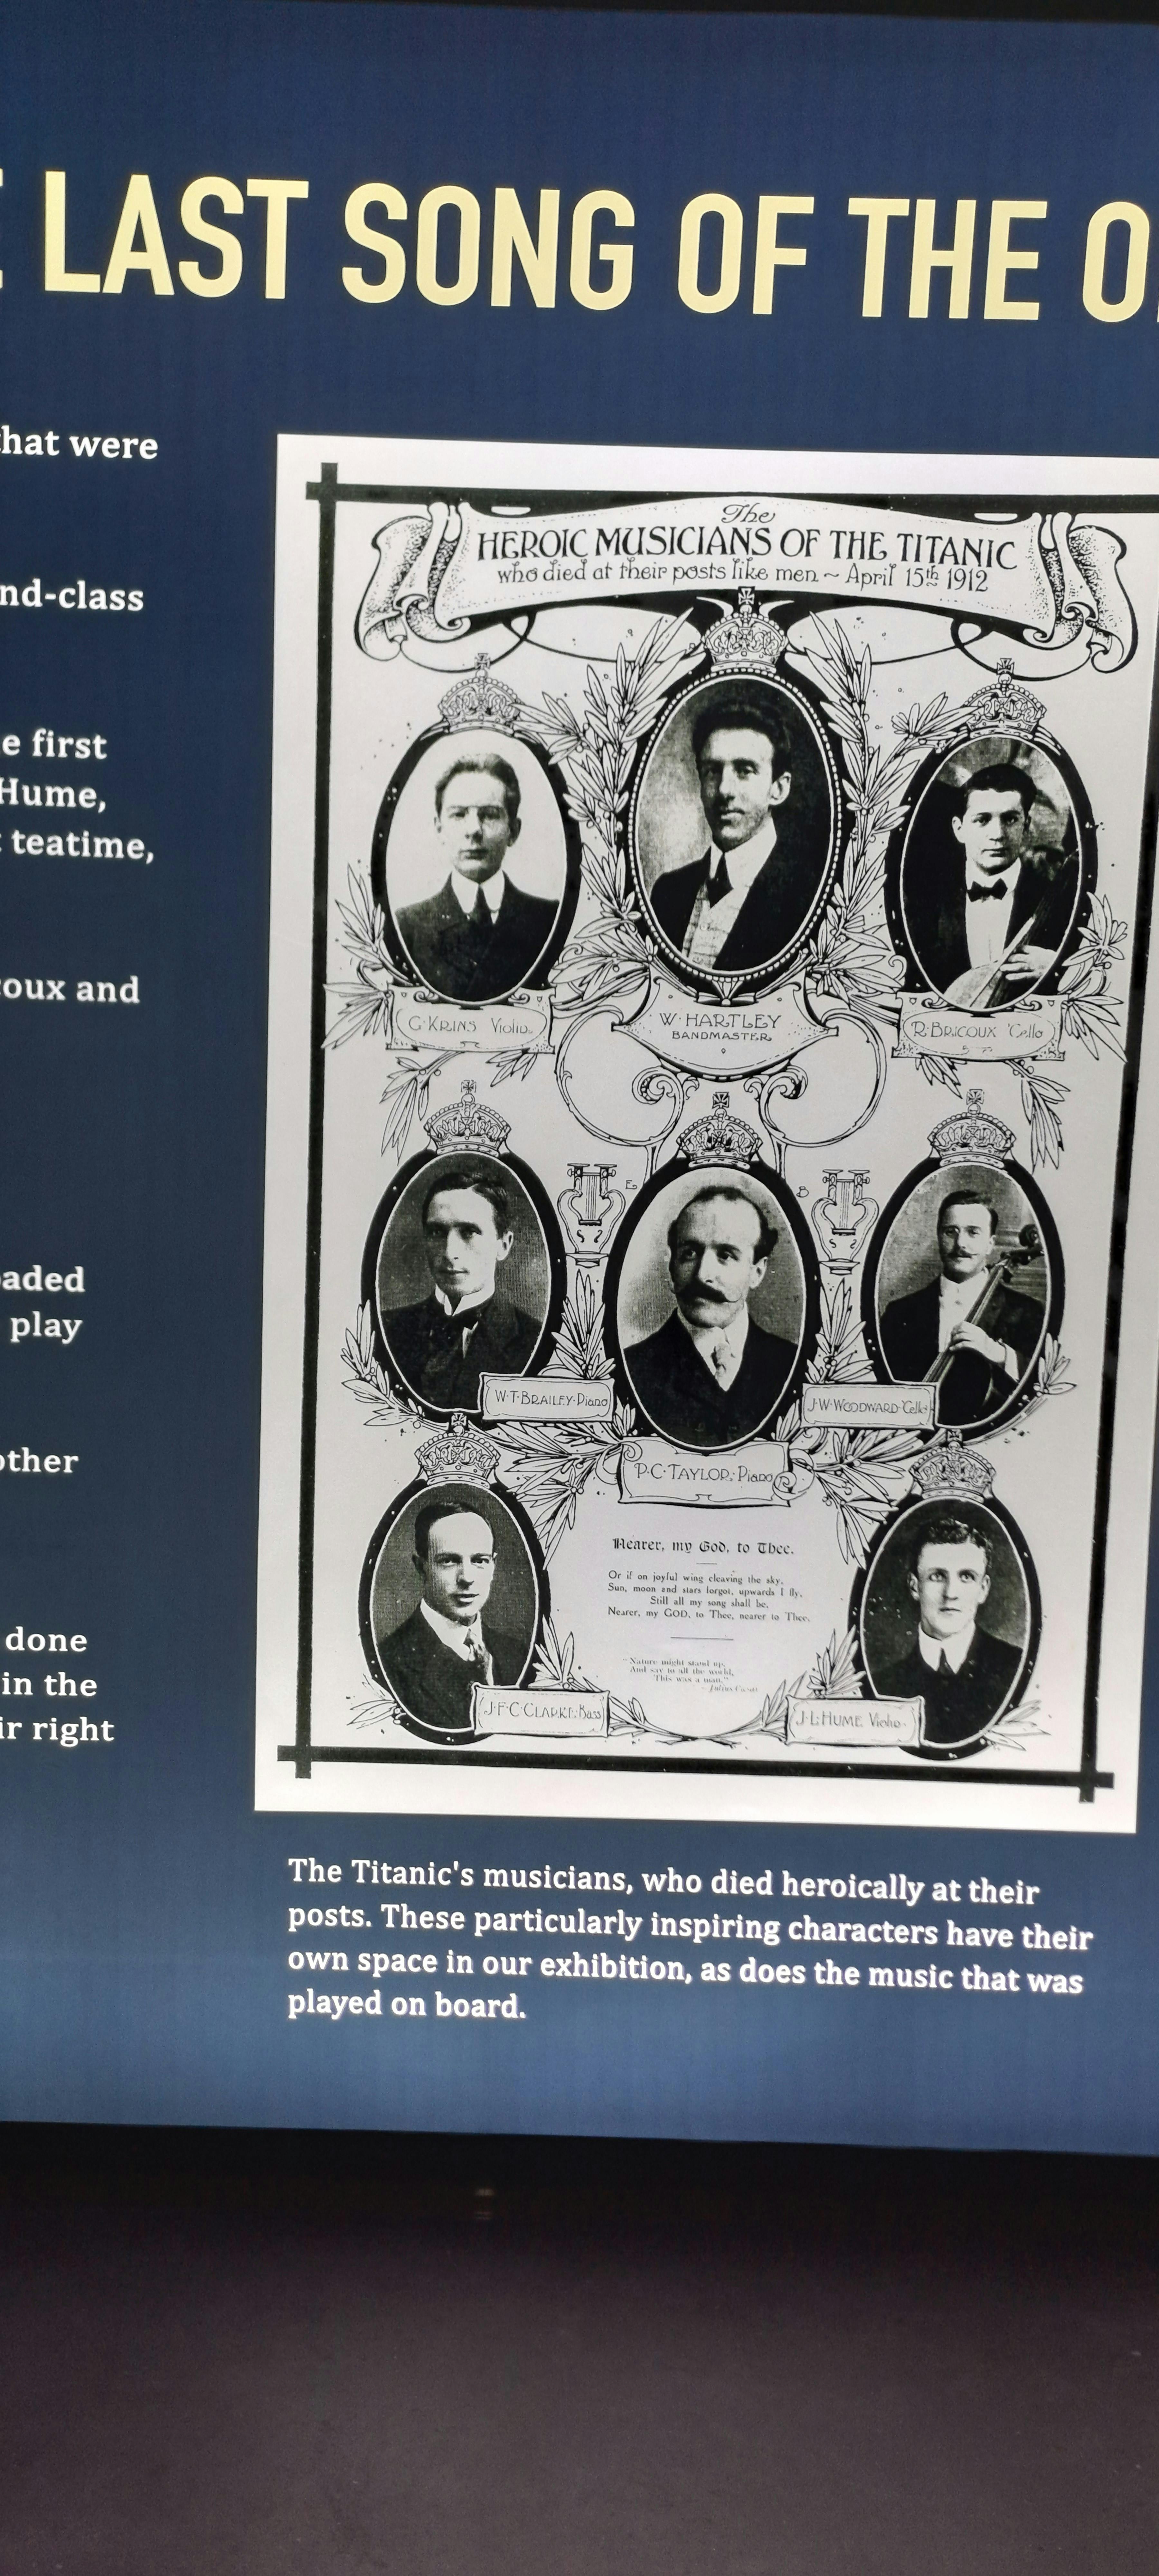 LAST SONG OF THE O
that were
nd-class
e first
Hume,
teatime,
coux and
oaded
play
other
done
in the
ir right
The
HEROIC MUSICIANS OF THE TITANIC
who died at their posts like men ~ April 15th 1912
G·KRINS Violin
W·HARTLEY
BANDMASTER
R·BRICOUX 'Cello
E
B
W·T·BRAILEY·Piano
J·W·WOODWARD·Cello
P·C·TAYLOR·Piano
Nearer, my God, to Thee.
Or if on joyful wing cleaving the sky,
Sun, moon and stars forgot, upwards I fly,
Still all my song shall be,
Nearer, my GOD, to Thee, nearer to Thee.
"Nature might stand up,
And say to all the world,
'This was a man.'"
J·F·C·CLARKE·Bass
J·L·HUME Violin
The Titanic's musicians, who died heroically at their
posts. These particularly inspiring characters have their
own space in our exhibition, as does the music that was
played on board.